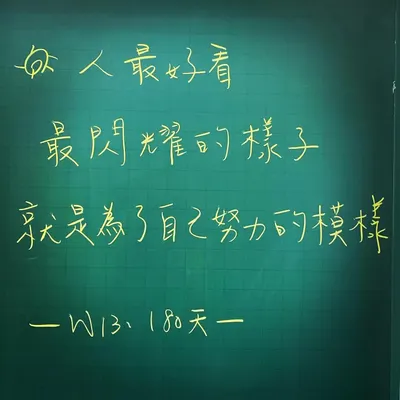 人最好看
最閃耀的樣子
就是為了自己努力的模樣
—W13、180天—